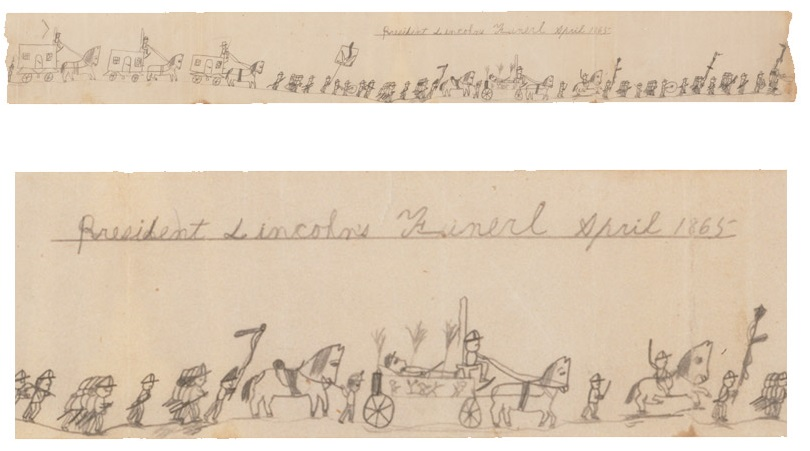 President Lincolns Funerl April 1865
President Lincolns Funerl April 1865